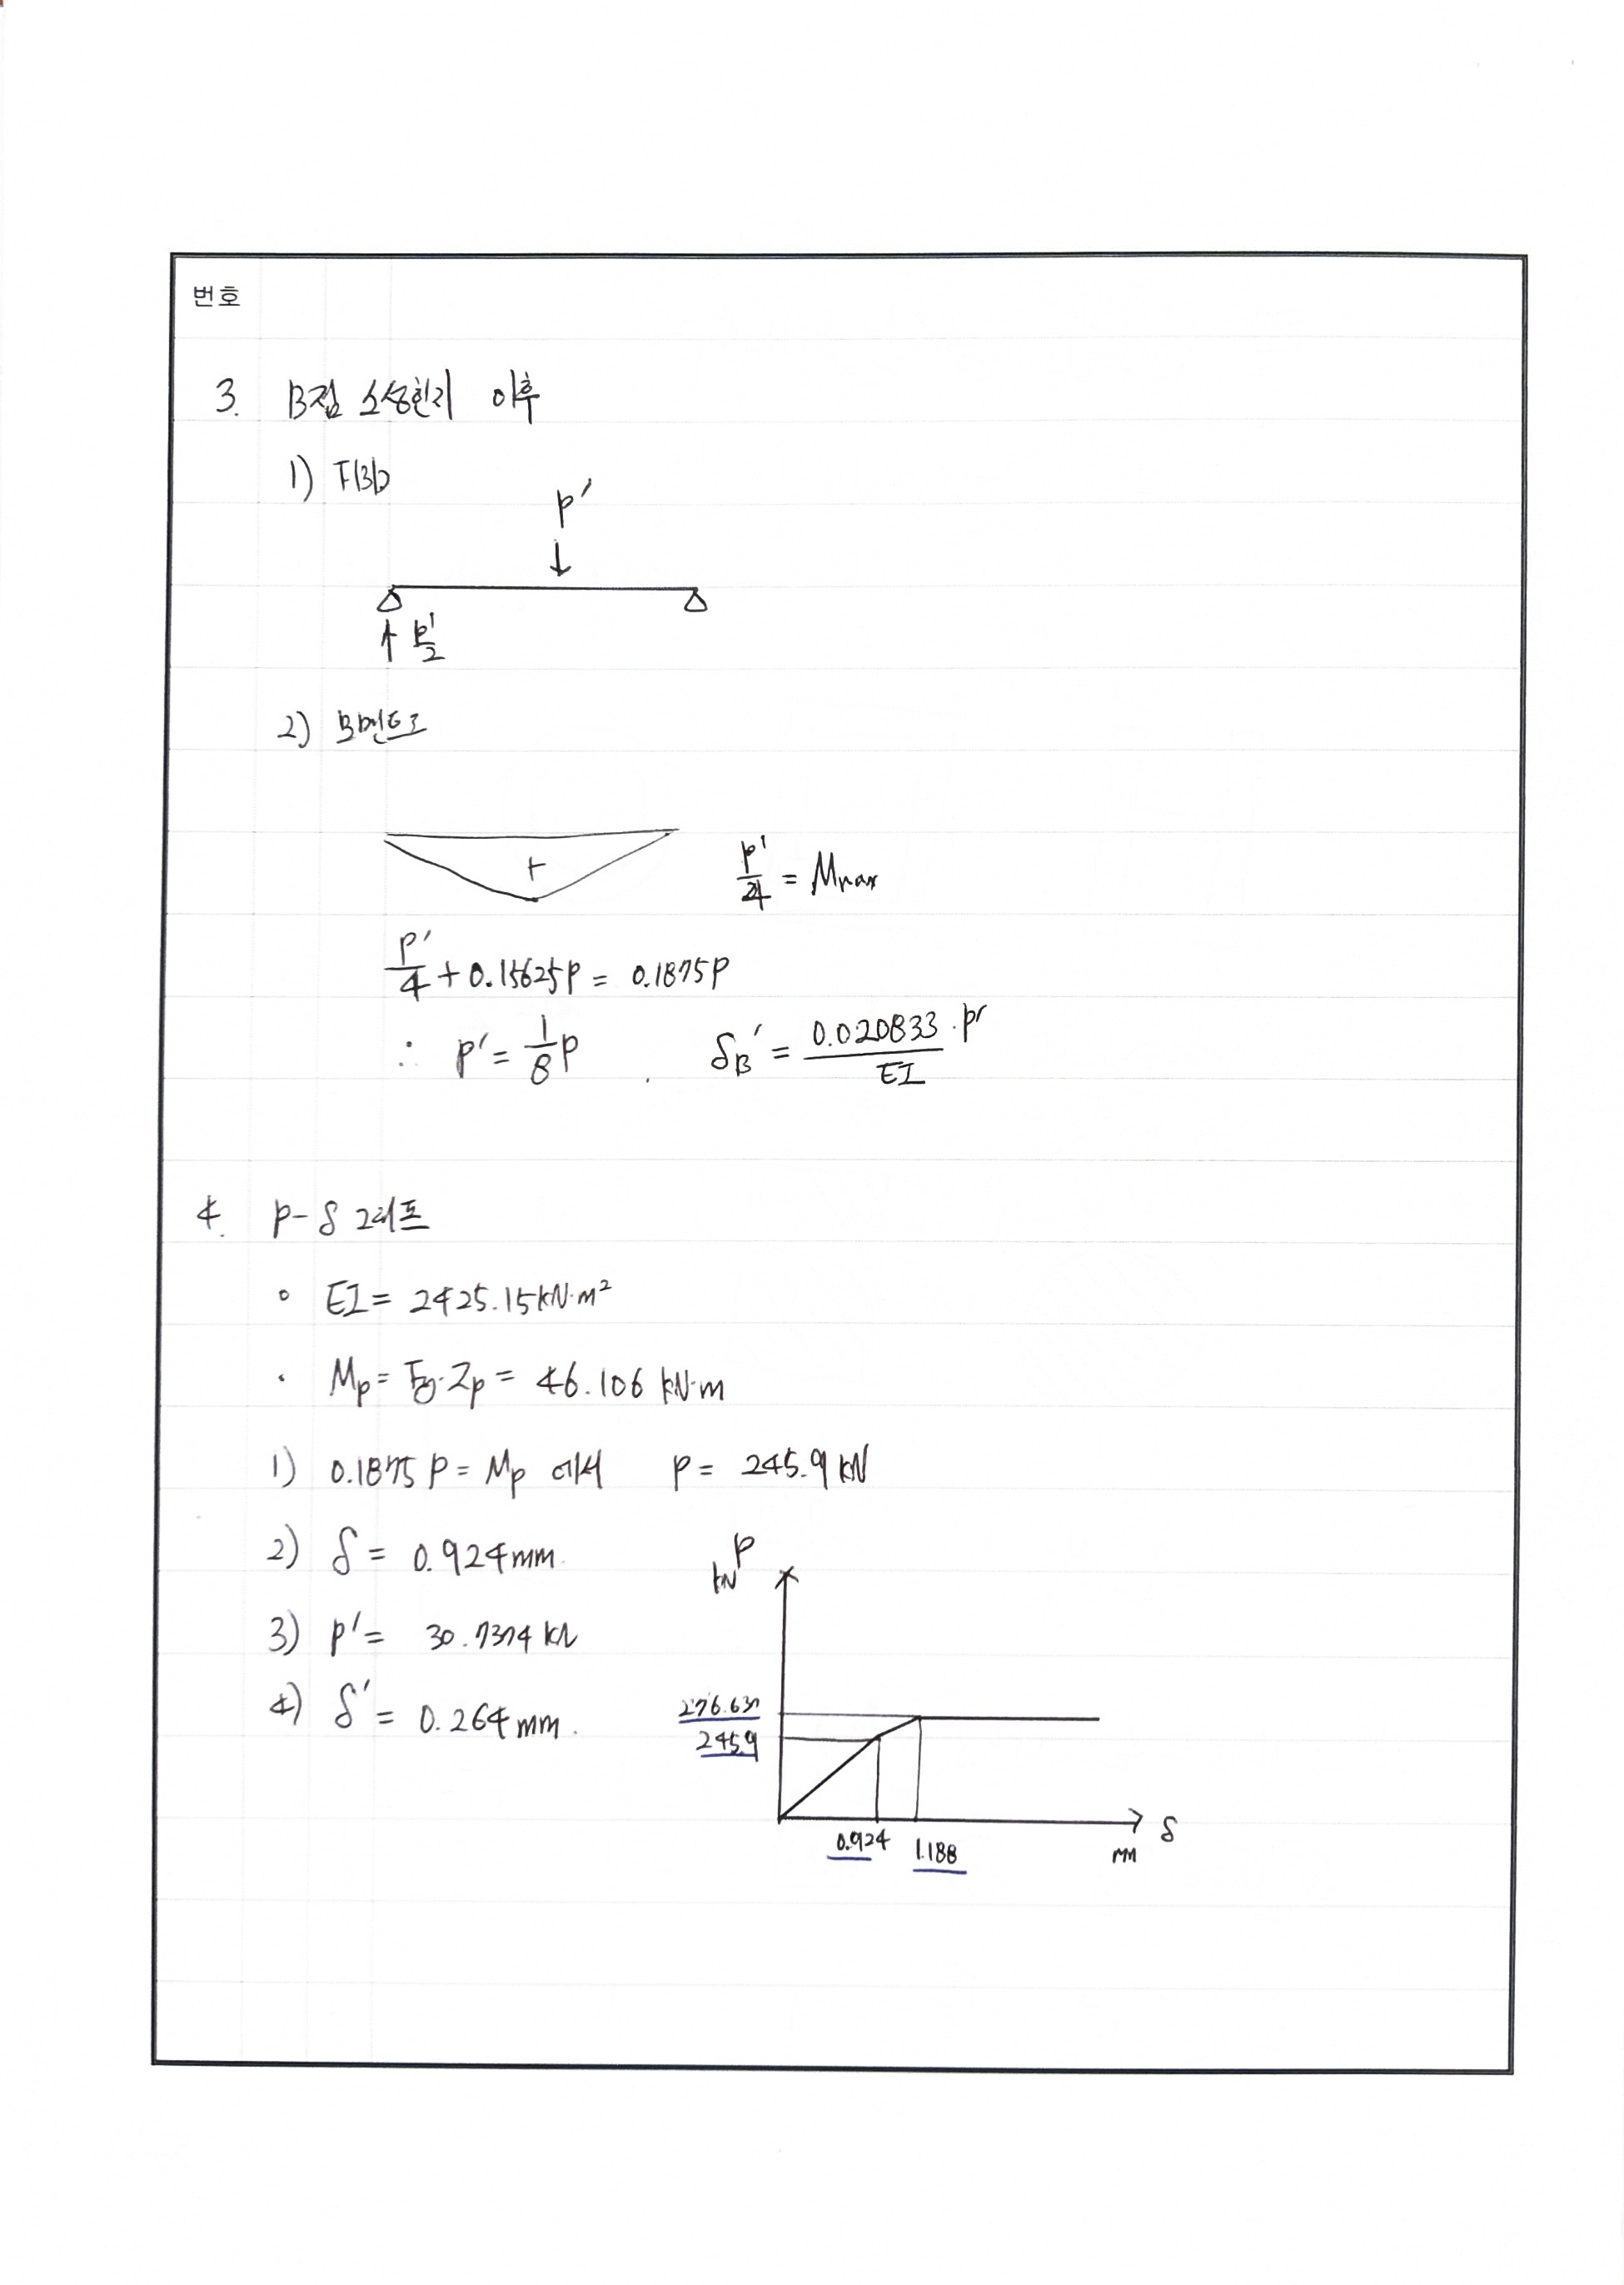 번호
3. B점 소성힌지 이후
1) FBD
P′
↑ P′/2
2) 모멘트도
+
P′/4 = Mmax
P′/4 + 0.15625P = 0.1875P
∴ P′ = 1/8 P , δB′ = 0.020833·P′/EI
4. P-δ 그래프
∘ EI = 2425.15kN·m²
· Mp = Fy·Zp = 46.106 kN·m
1) 0.1875 P = Mp 에서 P = 245.9 kN
2) δ = 0.924mm.
3) P′ = 30.7374 kN
4) δ′ = 0.264mm.
P
kN
276.637
245.9
0.924 1.188
δ
mm